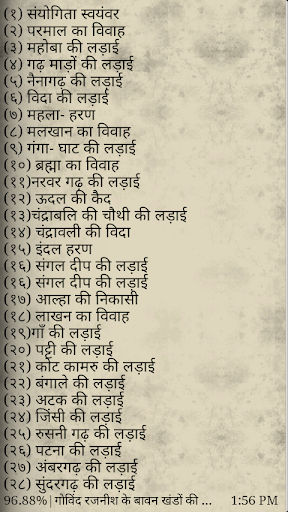 (१) संयोगिता स्वयंवर
(२) परमाल का विवाह
(३) महोबा की लड़ाई
(४) गढ़ माड़ों की लड़ाई
(५) नैनागढ़ की लड़ाई
(६) विदा की लड़ाई
(७) महला- हरण
(८) मलखान का विवाह
(९) गंगा- घाट की लड़ाई
(१०) ब्रह्मा का विवाह
(११)नरवर गढ़ की लड़ाई
(१२) ऊदल की कैद
(१३)चंद्राबलि की चौथी की लड़ाई
(१४) चंद्रावली की विदा
(१५) इंदल हरण
(१६) संगल दीप की लड़ाई
(१६) संगल दीप की लड़ाई
(१७) आल्हा की निकासी
(१८) लाखन का विवाह
(१९)गाँ की लड़ाई
(२०) पट्टी की लड़ाई
(२१) कोट कामरु की लड़ाई
(२२) बंगाले की लड़ाई
(२३) अटक की लड़ाई
(२४) जिंसी की लड़ाई
(२५) रुसनी गढ़ की लड़ाई
(२६) पटना की लड़ाई
(२७) अंबरगढ़ की लड़ाई
(२८) सुंदरगढ़ की लड़ाई
96.88% | गोविंद रजनीश के बावन खंडों की ... 1:56 PM